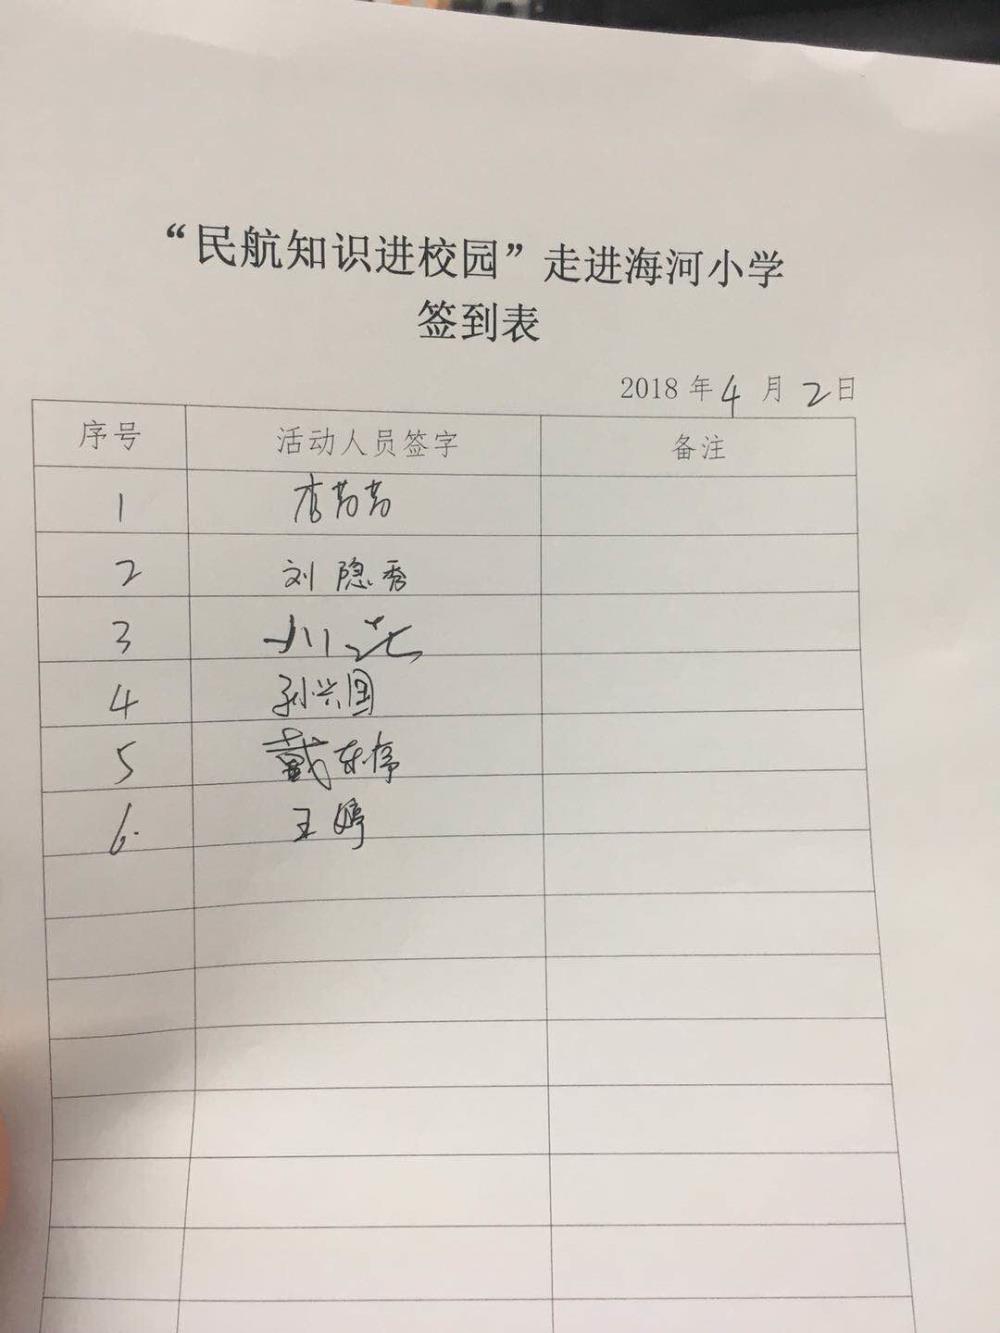 “民航知识进校园”走进海河小学
签到表
2018 年 4 月 2 日
序号 活动人员签字 备注
1 李芳芳
2 刘隐秀
3
4 孙兴国
5 戴
6. 王婷